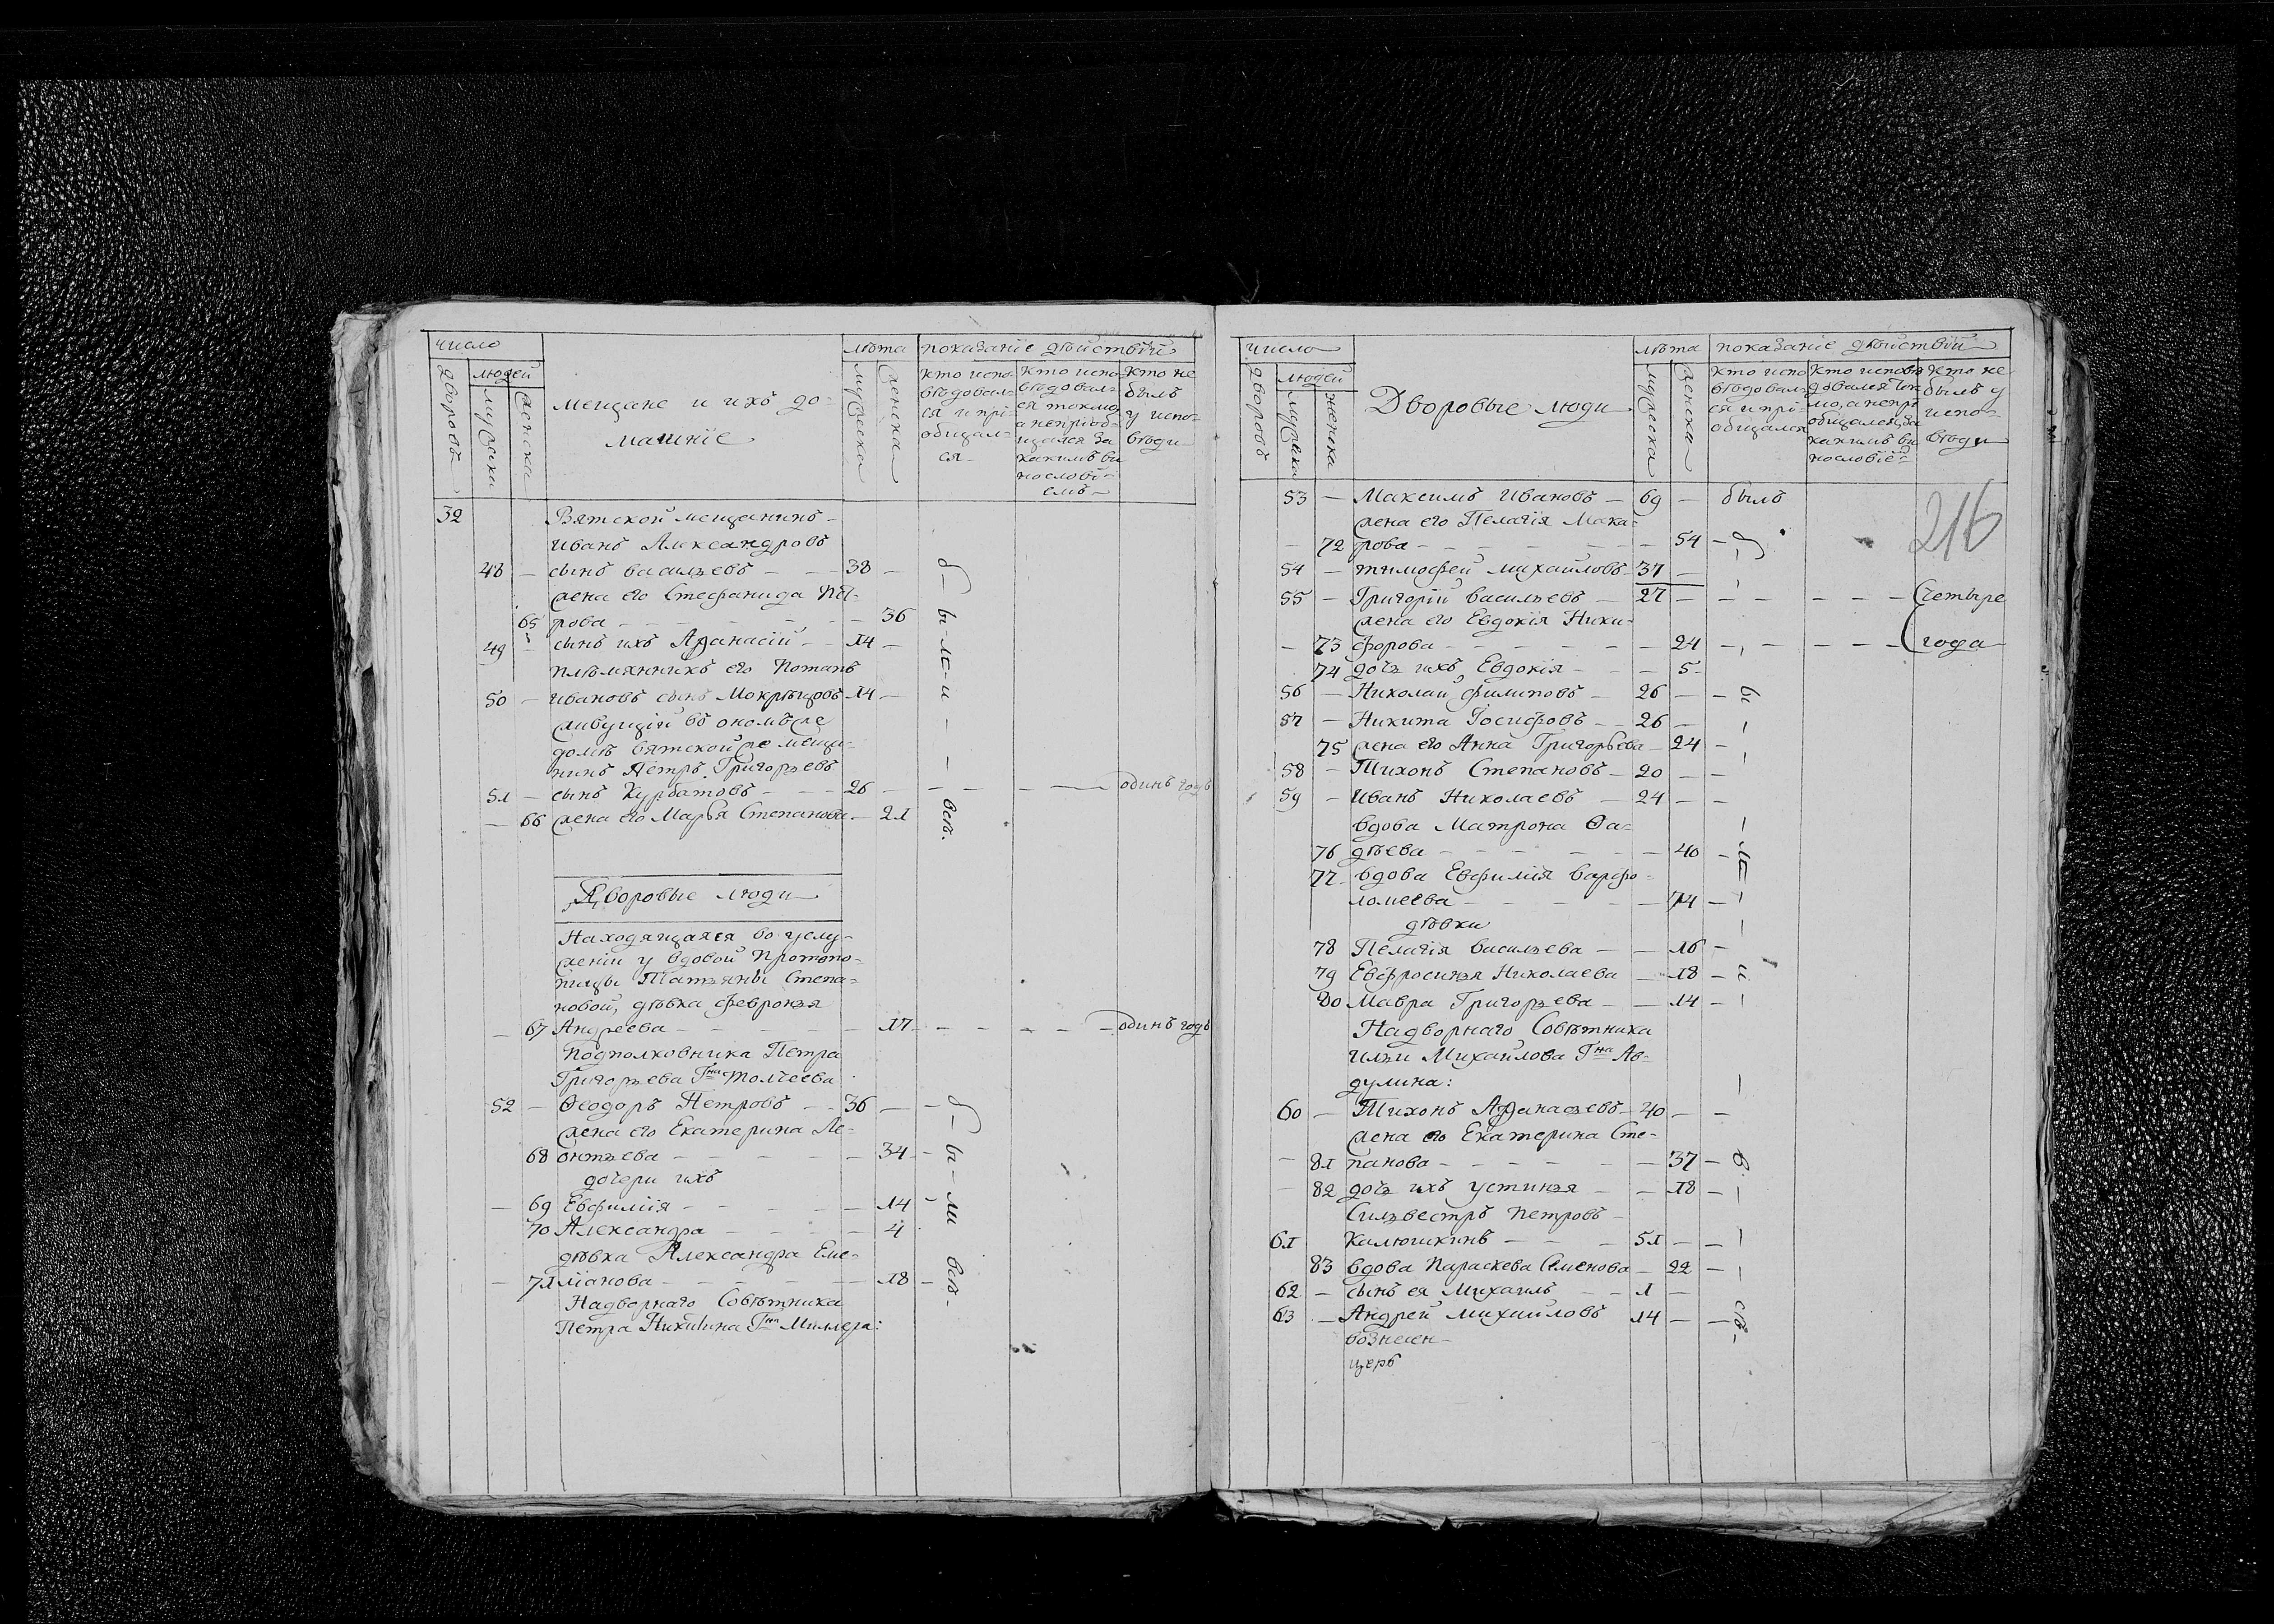 число
людей
дворовъ
мужска
женска
Мещане и ихъ до-
машніе
лѣта
мужеска
женска
показаніе дѣйствій
кто испо-
вѣдовал-
ся и прі-
общал-
ся
кто испо-
вѣдовал-
ся токмо,
а непріоб-
щался за
какимъ ви
нословi-
емъ
кто не
былъ
у испо-
вѣди
32
Вятской мещанинъ
Иванъ Александровъ
48 — сынъ Васильевъ — — 38 —
жена его Стефанида Пѣт-
65 рова — — — — — 36
49 — сынъ ихъ Афанасій — — 14 —
племянникъ его Потапъ
50 — Ивановъ сынъ Мокрецовъ 14 —
живущій въ ономъ же
домѣ Вятской же меща-
нинъ Петръ Григорьевъ
51 — сынъ Курбатовъ — — — 26 — — — — — одинъ годъ
— 66 жена его Марья Степанова — 21
бы-ли — — всѣ.
Дворовые люди
Находящаяся во услу-
женіи у вдовой Протопо-
пицы Татьяны Степа-
новой, дѣвка Февронья
— 67 Андреева — — — — — 17 — — — — — одинъ годъ
Подполковника Петра
Григорьева Гна Толчеева
52 — Ѳеодоръ Петровъ — — 36 — —
жена его Екатерина Ле-
68 онтьева — — — — — 34 —
дочери ихъ
— 69 Евфимія — — — — — 14 —
70 Александра — — — — 4
дѣвка Александра Еме-
— 71 ліанова — — — — — 18 —
б — ы — ли всѣ.
Надворнаго Совѣтника
Петра Никитина Гна Миллера:
число
людей
дворовъ
мужска
женска
Дворовые люди
лѣта
мужеска
женска
показаніе дѣйствій
кто испо
вѣдовал-
ся и прі-
общался
кто испов
довался ток
мо, а непрі
общался, за
какимъ ви
нословіе
кто не
былъ у
испо-
вѣди
216
53 — Максимъ Ивановъ — 69 — былъ
жена его Пелагія Мака-
— 72 рова — — — — — — 54 —
54 — Тимофей Михайловъ 37 —
55 — Григорій Васильевъ — 27 — — — — — — Четыре
жена его Евдокія Ники-
— 73 форова — — — — — — 24 — — — — — года
74 дочь ихъ Евдокія — — — 5 —
56 — Николай Филиповъ — 26 — —
57 — Никита Іосифовъ — — 26 —
75 жена его Анна Григорьева — 24 —
58 — Тихонъ Степановъ — 20 — —
59 — Иванъ Николаевъ — 24 — —
вдова Матрона Ѳа-
76 дѣева — — — — — — 40 —
77 вдова Евфимія Варфо-
ломеева — — — — — 74 —
дѣвки
78 Пелагія Васильева — — 16 —
79 Евфросинья Николаева — 18 —
80 Мавра Григорьева — — 14 —
Надворнаго Совѣтника
Ильи Михайлова Гна Ав-
дулина:
60 — Тихонъ Афанасьевъ — 40 — —
жена его Екатерина Сте-
— 81 панова — — — — — 37 —
— 82 дочь ихъ Устинья — — 18 —
Сильвестръ Петровъ —
61 Калюгикинъ — — — 51 — —
83 вдова Параскева Семенова — 22 —
62 — сынъ ея Михаилъ — — 1 —
63 — Андрей Михайловъ 14 — —
б — ы — ли — всѣ —
вознесен-
церк